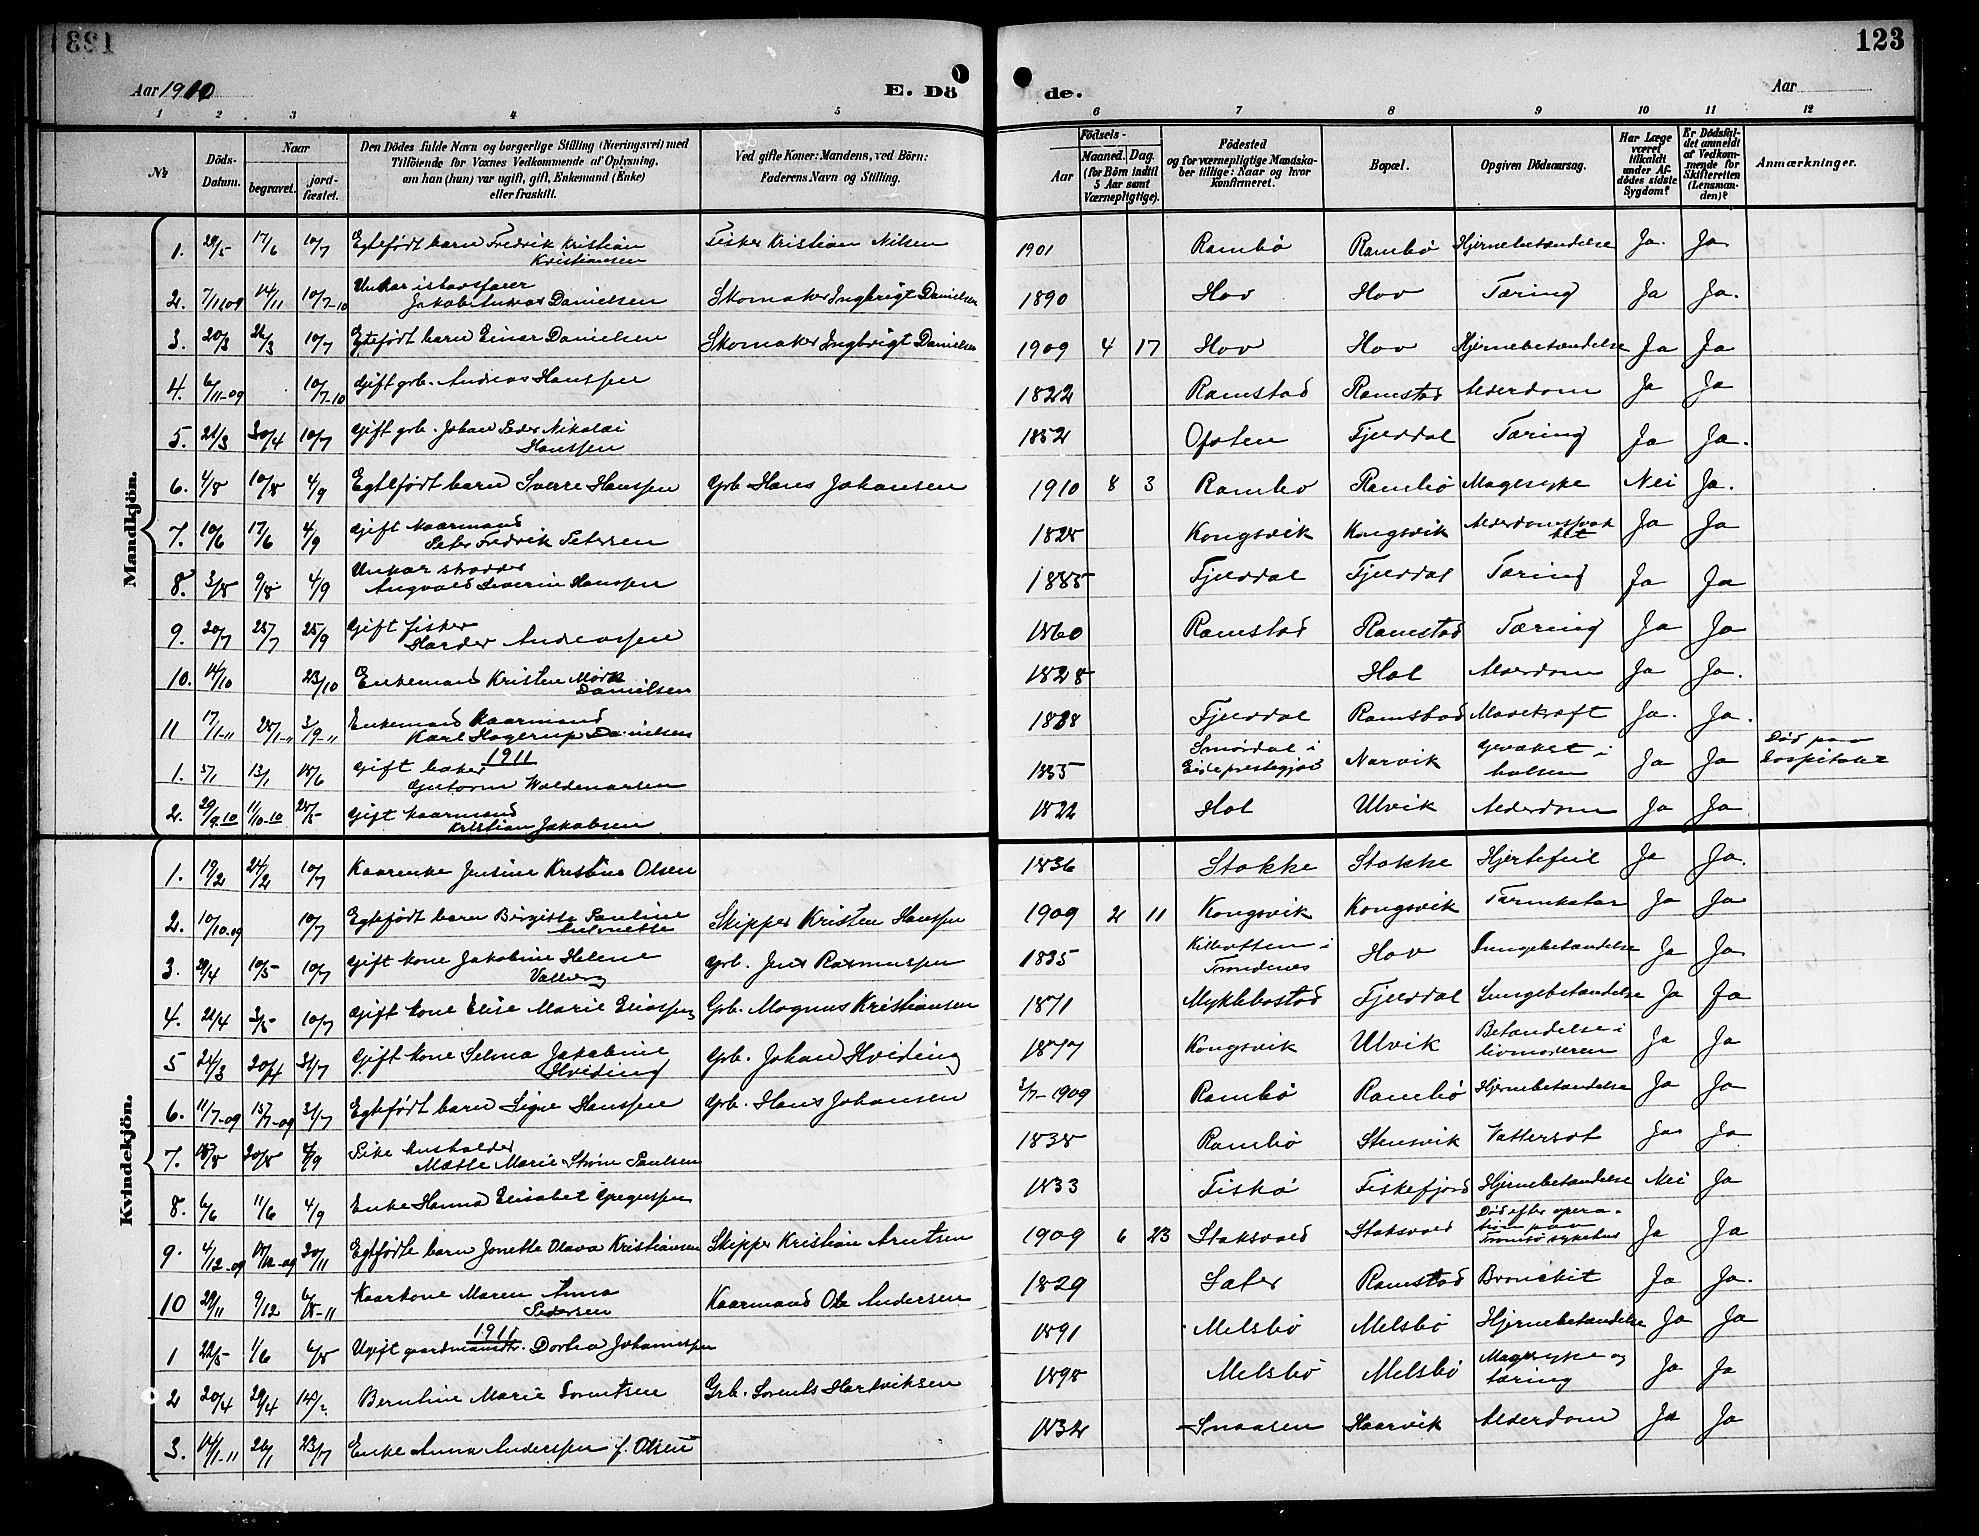 123
Aar 1910
E. Dö
de.
Aar
1 2 3 4 5 6 7 8 9 10 11 12
№
Döds-Datum.
Naar
begravet.
jord-fæstet.
Den Dödes fulde Navn og borgerlige Stilling (Næringsvei) med
Tilföiende for Voxnes Vedkommende af Oplysning,
om han (hun) var ugift, gift, Enkemand (Enke)
eller fraskilt.
Ved gifte Koner: Mandens, ved Börn:
Faderens Navn og Stilling.
Födsels-
Aar
Maaned. Dag.
(for Börn indtil
5 Aar samt
Værnepligtige).
Födested
og for værnepligtige Mandska-
ber tillige: Naar og hvor
konfirmeret.
Bopæl.
Opgiven Dödsaarsag.
Har Læge
været
tilkaldt
under Af-
dödes sidste
Sygdom?
Er Dödsfal-
det anmeldt
af Vedkom-
mende for
Skifteretten
(Lensman-
den)?
Anmærkninger.
Mandkjön.
1. 29/5 17/6 10/7 Egtefødt barn Fredrik Kristian Kristiansen Fisker Kristian Nilsen 1901 Rambø Rambø Hjernebetændelse Ja Ja
2. 7/11 09 14/11 10/7-10 Unkar Jakob Danielsen Skomaker Ingbrigt Danielsen 1890 Hov Hov Tæring Ja Ja.
3. 20/3 26/3 10/7 Egtefødt barn Einar Danielsen Skomaker Ingbrigt Danielsen 1909 4 17 Hov Hov Hjernebetændelse Ja Ja
4. 6/11-09 10/7-10 Gift grb. Andreas Hanssen 1822 Ramstad Ramstad Alderdom Ja Ja
5. 21/3 30/4 10/7 Gift grb. Johan Peder Nikolai Hanssen 1852 Ofoten Fjelldal Tæring Ja Ja.
6. 4/8 10/8 4/9 Egtefødt barn Sverre Hanssen Grb Hans Johansen 1910 8 3 Rambø Rambø Magesyke Nei Ja.
7. 10/6 17/6 4/9 Gift kaarmand Peter Fredrik Petersen 1825 Kongsvik Kongsvik Ja Ja
8. 3/8 9/8 4/9 Unkar Angvald Severin Hanssen 1885 Fjelldal Fjelldal Tæring Ja Ja
9. 20/7 25/7 25/9 Gift fisker Harder Andreassen 1860 Ramstad Ramstad Tæring Ja Ja
10. 14/10 23/10 Enkemand Kristen Mørk Danielsen 1828 Hol Alderdom Ja Ja.
11 17/1-11 3/9-11 Enkemand Kaarmand Karl Hagerup Danielsen Fjelldal Ramstad Ja. Ja.
1911
1. 5/1 13/1 18/6 Gift baker Guttorm Waldemarsen Narvik halsen Ja Ja Død paa
2. 29/9-10 11/10-10 Gift kaarmand Kristian Jakobsen 1822 Hol Ulvik Alderdom Ja Ja
Kvindekjön.
1. 19/2 24/2 10/7 Kaarenke Jensine Kristine Olsen 1836 Stokke Stokke Hjertefeil Ja Ja.
2. 10/10-09 10/7 Egtefødt barn Birgitte Pauline Skipper Kristen Hanssen 1909 2 11 Kongsvik Kongsvik Tarmkatar Ja Ja
3. 29/4 10/5 10/7 Gift kone Jakobine Helene Valberg Grb. Jens Rasmussen 1835 Trondenes Hov Lungebetændelse Ja Ja.
4. 21/4 3/5 10/7 Gift kone Elise Marie Eliassen Grb. Magnus Kristiansen 1871 Myklebostad Fjelldal Lungebetændelse Ja Ja
5 24/3 30/4 31/7 Gift kone Selma Jakobine Hviding Grb. Johan Hviding 1877 Kongsvik Ulvik Betændelse i livmoderen Ja Ja
6. 11/7-09 15/7-09 31/7 Egtefødt barn Signe Hanssen Grb. Hans Johansen 2/7-1909 Rambø Rambø Hjernebetændelse Ja Ja
7. 20/8 4/9 Pike husholder Mætte Marie Strøm Paulsen 1838 Rambø Stensvik Vattersot Ja Ja
8. 6/6 11/6 4/9 Enke Hanna Elisabet Gregussen 1833 Fiskø Fiskefjord Hjernebetændelse Nei Ja
9. 4/12-09 18/12-09 20/11 Egtefødte barn Jonette Olava Kristiansen Skipper Kristian Arntsen 1909 6 23 Staksvold Staksvold Død efter opera-tion paa Tromsø sykehus Ja Ja
10 29/11 9/12 6/8-11 Kaarkone Maren Anna Pedersen Kaarmand Ole Andersen 1829 Sater Ramstad Bronchit Ja Ja.
1911
1 22/5 1/6 6/8 Ugift gaardmandsdtr. Dortea Johannessen 1891 Melsbø Melsbø Hjernebetændelse Ja Ja
2 20/4 29/4 Berntine Marie Sorentsen Grb. Sorents Hartviksen 1898 Melsbø Melsbø Magesyke og tæring Ja Ja
3. 14/1-11 26/1 23/7 Enke Anna Anderssen f. Olsen 1832 Snaasen Haarvik Alderdom Ja Ja